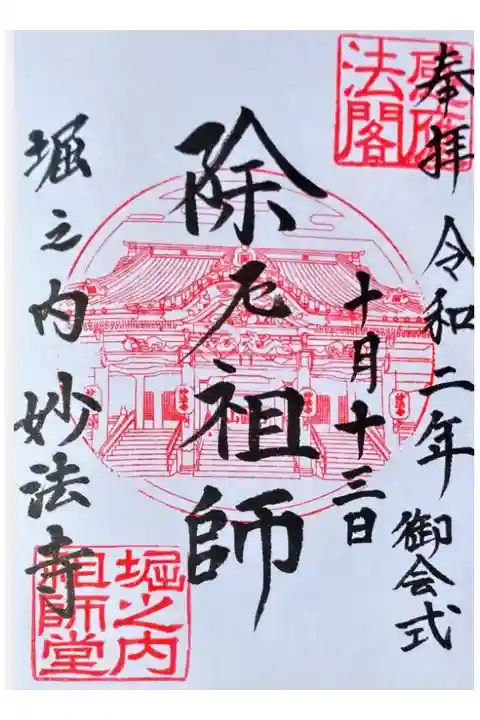 奉拝 令和二年 御会式
十月十三日
除厄祖師
堀之内 妙法寺
感應
法閣
堀之内
祖師堂